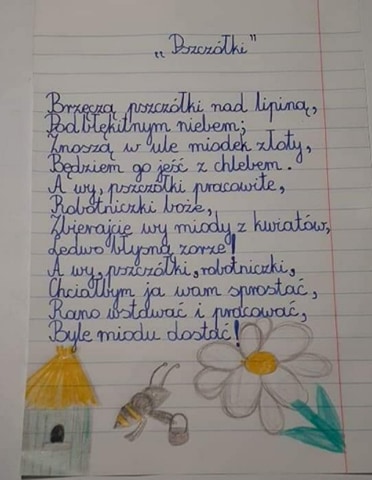 „Pszczółki"
Brzęczą pszczółki nad lipiną,
Pod błękitnym niebem;
Znoszą w ule miodek złoty,
Będziem go jeść z chlebem.
A wy, pszczółki pracowite,
Robotniczki boże,
Zbierajcie wy miody z kwiatów,
Ledwo błysną zorze!
A wy, pszczółki, robotniczki,
Chciałbym ja wam sprostać,
Rano wstawać i pracować,
Byle miodu dostać!